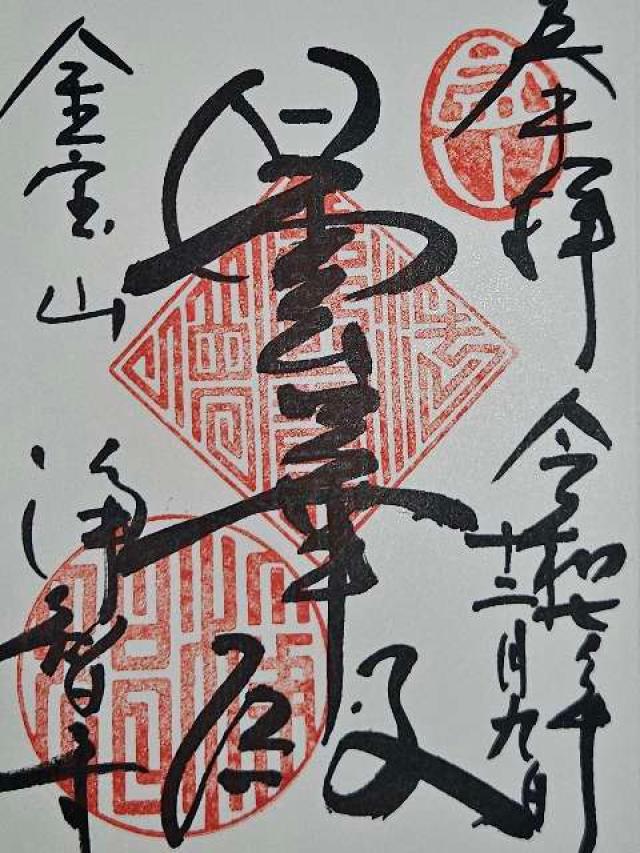 奉拝
令和七年
十二月九日
曇華殿
金宝山
浄智寺